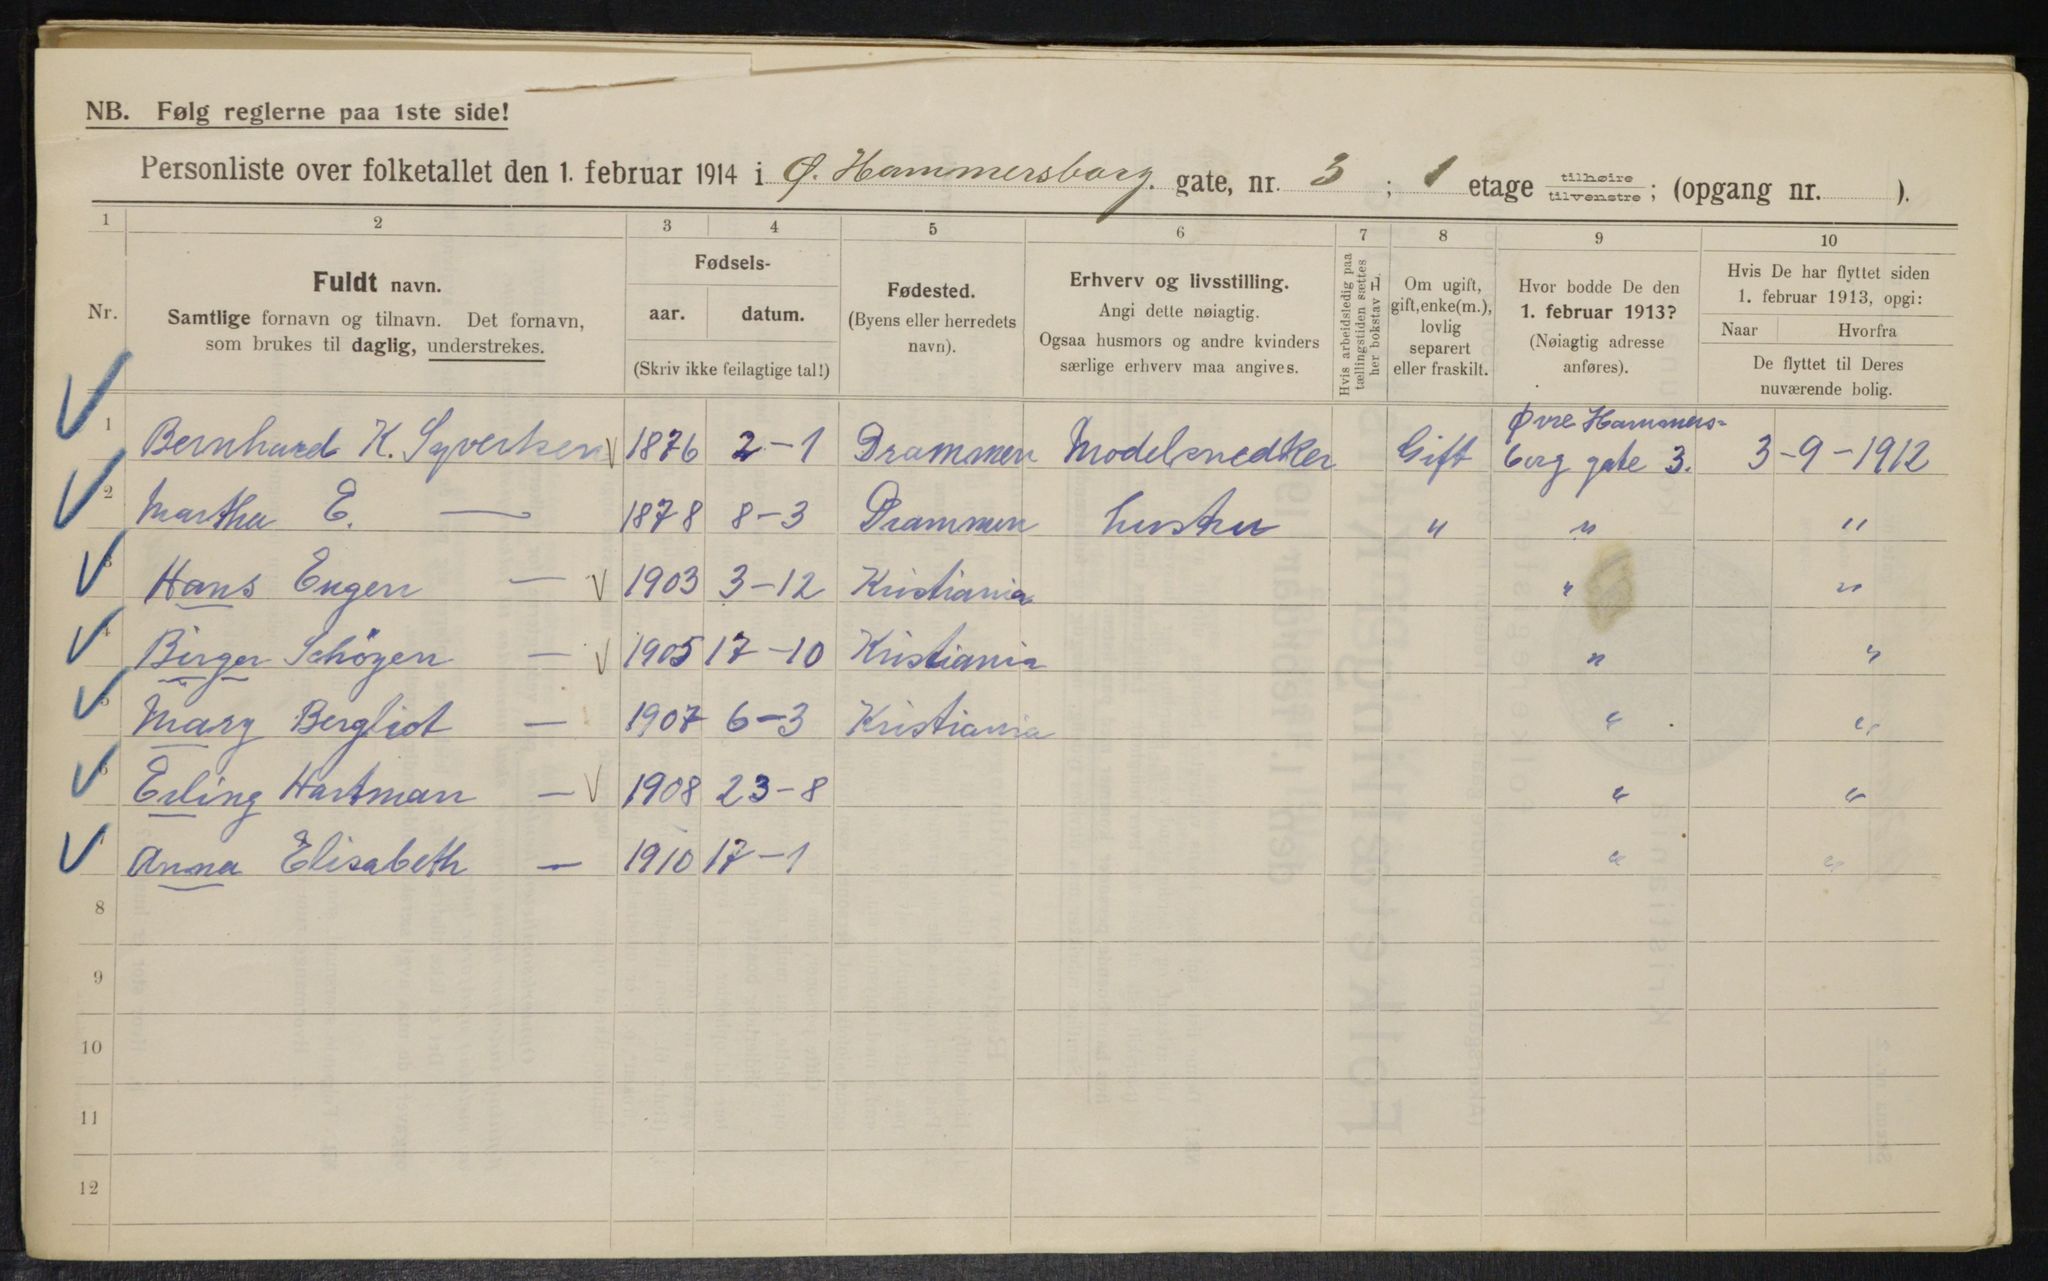 NB. Følg reglerne paa 1ste side!
Personliste over folketallet den 1. februar 1914 i Ø. Hammersborg. gate, nr. 3 ; 1 etage tilhøire tilvenstre; (opgang nr. ).
1 2 3 4 5 6 7 8 9 10
Nr.
Fuldt navn.
Samtlige fornavn og tilnavn. Det fornavn,
som brukes til daglig, understrekes.
Fødsels-
aar. datum.
(Skriv ikke feilagtige tal!)
Fødested.
(Byens eller herredets
navn).
Erhverv og livsstilling.
Angi dette nøiagtig.
Ogsaa husmors og andre kvinders
særlige erhverv maa angives.
Hvis arbeidstedig paa
tællingstiden sættes
her bokstav L.
Om ugift,
gift, enke(m.),
lovlig
separert
eller fraskilt.
Hvor bodde De den
1. februar 1913?
(Nøiagtig adresse
anføres).
Hvis De har flyttet siden
1. februar 1913, opgi:
Naar Hvorfra
De flyttet til Deres
nuværende bolig.
1 Bernhard K. Syvertsen 1876 2-1 Drammen Modelsnedker Gift Øvre Hammers-
berg gate 3. 3-9-1912
2 Martha E. — 1878 8-3 Drammen hustru " " "
3 Hans Eugen — 1903 3-12 Kristiania " "
4 Birger Schöyen — 1905 17-10 Kristiania " "
5 Mary Bergliot — 1907 6-3 Kristiania " "
6 Erling Hartman — 1908 23-8 " "
Anna Elisabeth — 1910 17-1 " "
8
9
10
11
12